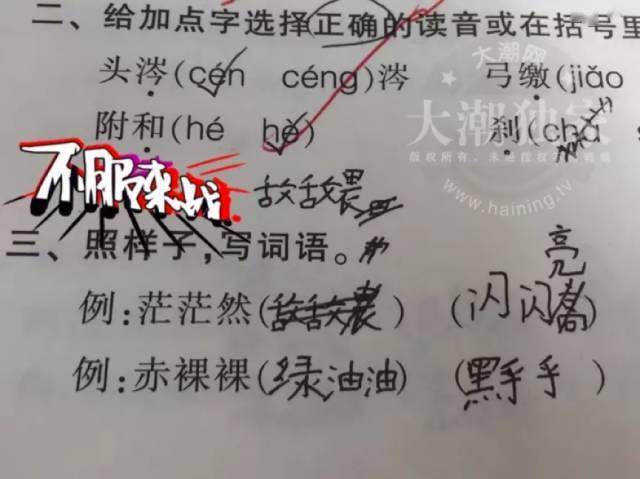 二、给加点字选择正确的读音或在括号里
大潮网
头涔(cén céng)涔 弓缴(jiǎo
大潮独家
附和(hé hè) 刹(chà
www.haining.tv
不服来战
三、照样子,写词语。
亮
例:茫茫然( ) (闪闪 )
例:赤裸裸(绿油油) (黑乎乎)